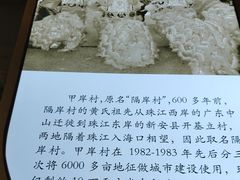 甲岸村，原名“隔岸村”，600多年前，
隔岸村的黄氏祖先从珠江西岸的广东中
山迁徙到珠江东岸的新安县开基立村，
两地隔着珠江入海口相望，因此取名隔
岸村。甲岸村在1982-1983年先后分三
次将6000多亩地征做城市建设使用，